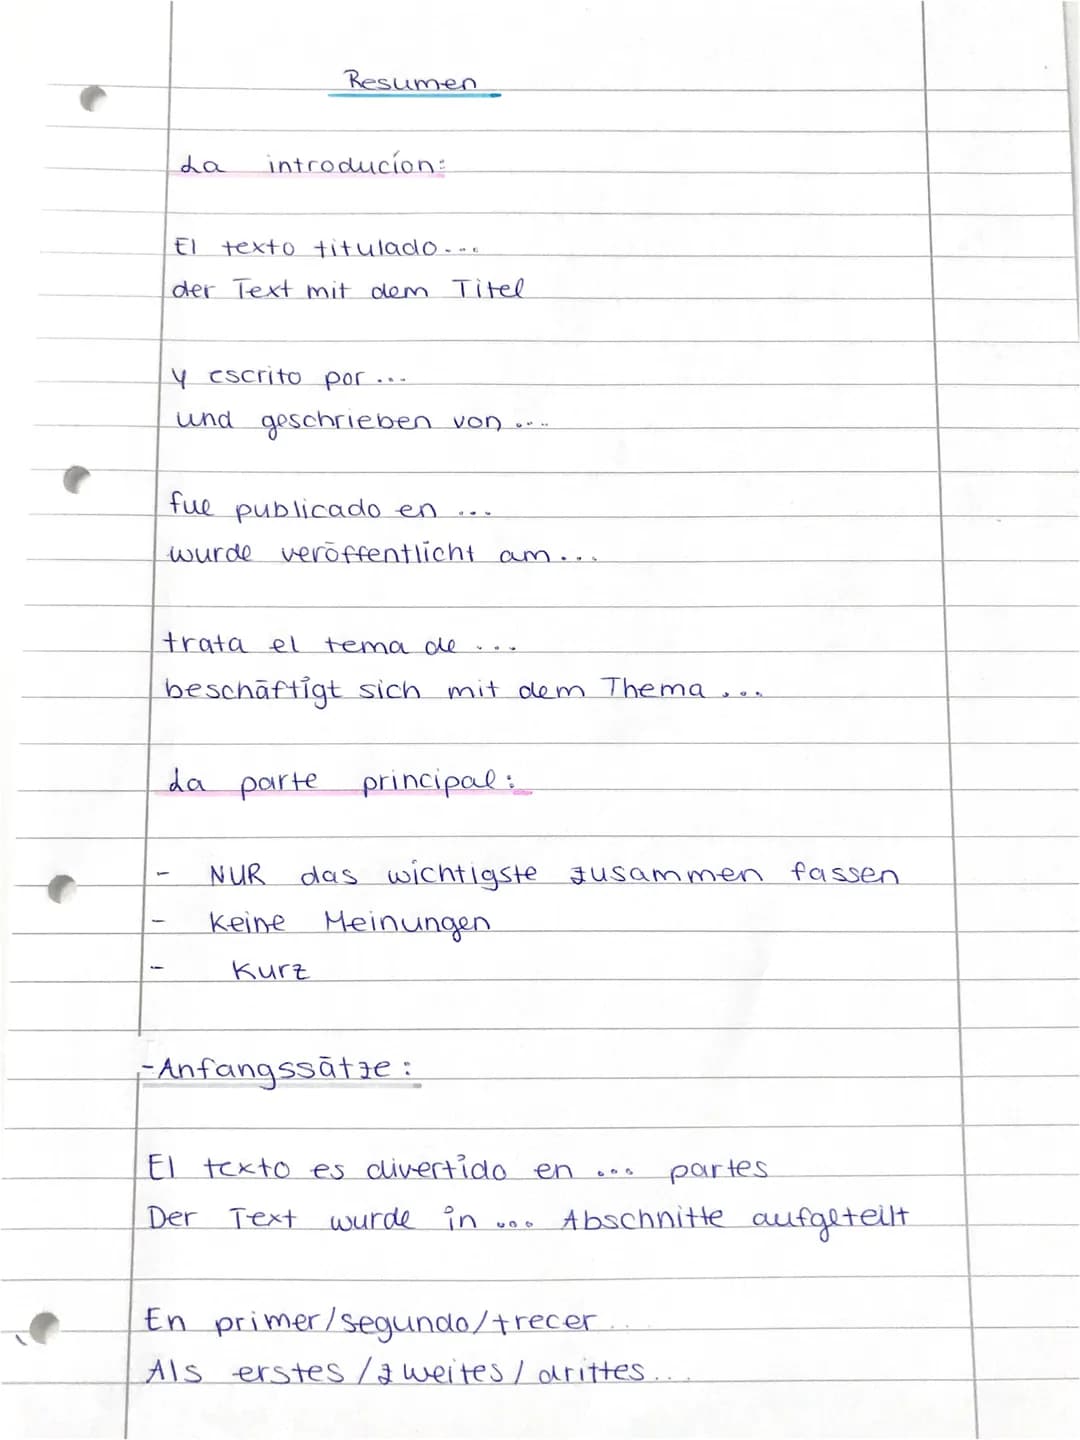 Resumen
La introducíon:
El texto titulado....
der Text mit dem Titel
y escrito por ...
und geschrieben von ....
fue publicado en ...
wurde veröffentlicht am...
trata el tema de ...
beschäftigt sich mit dem Thema ...
La parte principal:
- NUR das wichtigste zusammen fassen
- Keine Meinungen
- Kurz
-Anfangssätze:
El texto es divertido en ... partes
Der Text wurde in ... Abschnitte aufgeteilt
En primer/segundo/trecer...
Als erstes/zweites/drittes...